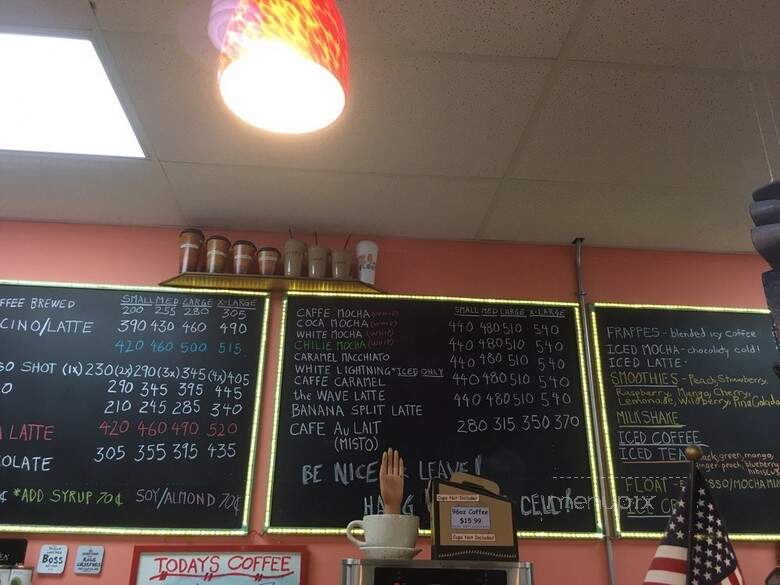 SMALL MED LARGE X-LARGE
FFEE BREWED 200 255 280 305
CINO/LATTE 390 430 460 490
420 460 500 515
SO SHOT (1X) 230 (2X) 290 (3X) 345 (4X) 405
O 290 345 395 445
210 245 285 340
A LATTE 420 460 490 520
COLATE 305 355 395 435
¢ *ADD SYRUP 70¢ SOY/ALMOND 70¢
SMALL MED LARGE X-LARGE
CAFFE MOCHA (WHIP) 440 480 510 540
COCA MOCHA (WHIP)
WHITE MOCHA (WHIP) 440 480 510 540
CHILIE MOCHA (WHIP)
CARAMEL MACCHIATO 440 480 510 540
WHITE LIGHTNING *ICED ONLY
CAFFE CARAMEL 440 480 510 540
the WAVE LATTE
BANANA SPLIT LATTE 440 480 510 540
CAFE AU LAIT 280 315 350 370
(MISTO)
BE NICE LEAVE!
FRAPPES - blended icy coffee
ICED MOCHA - chocolaty cold!
ICED LATTE
SMOOTHIES - Peach, Strawberry,
Raspberry, Mango, Cherry,
Lemonade, Wildberry, Pina Colada
MILKSHAKE
ICED COFFEE
ICED TEA black, green, mango,
ginger-peach, blueberry
hibiscus
FLOAT - ESPRESSO/MOCHA MIN
ICE CR
Cups Not Included
96oz Coffee
$15.99
Cups Not Included
BOSS
TODAYS COFFEE
menupix